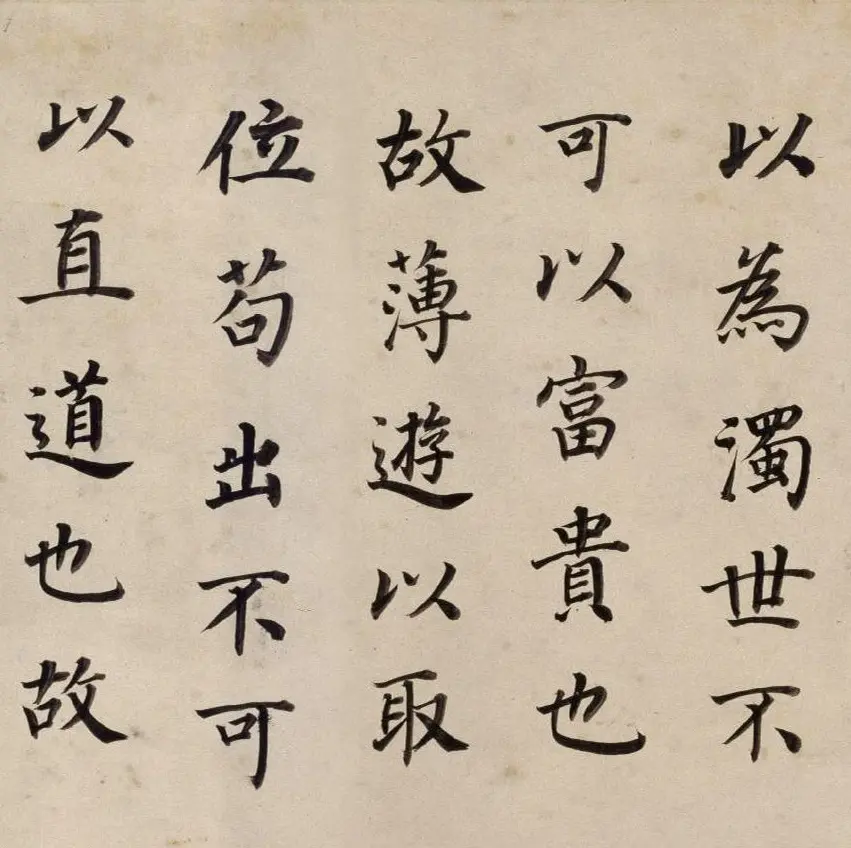 以為濁世不
可以富貴也
故薄遊以取
位苟出不可
以直道也故